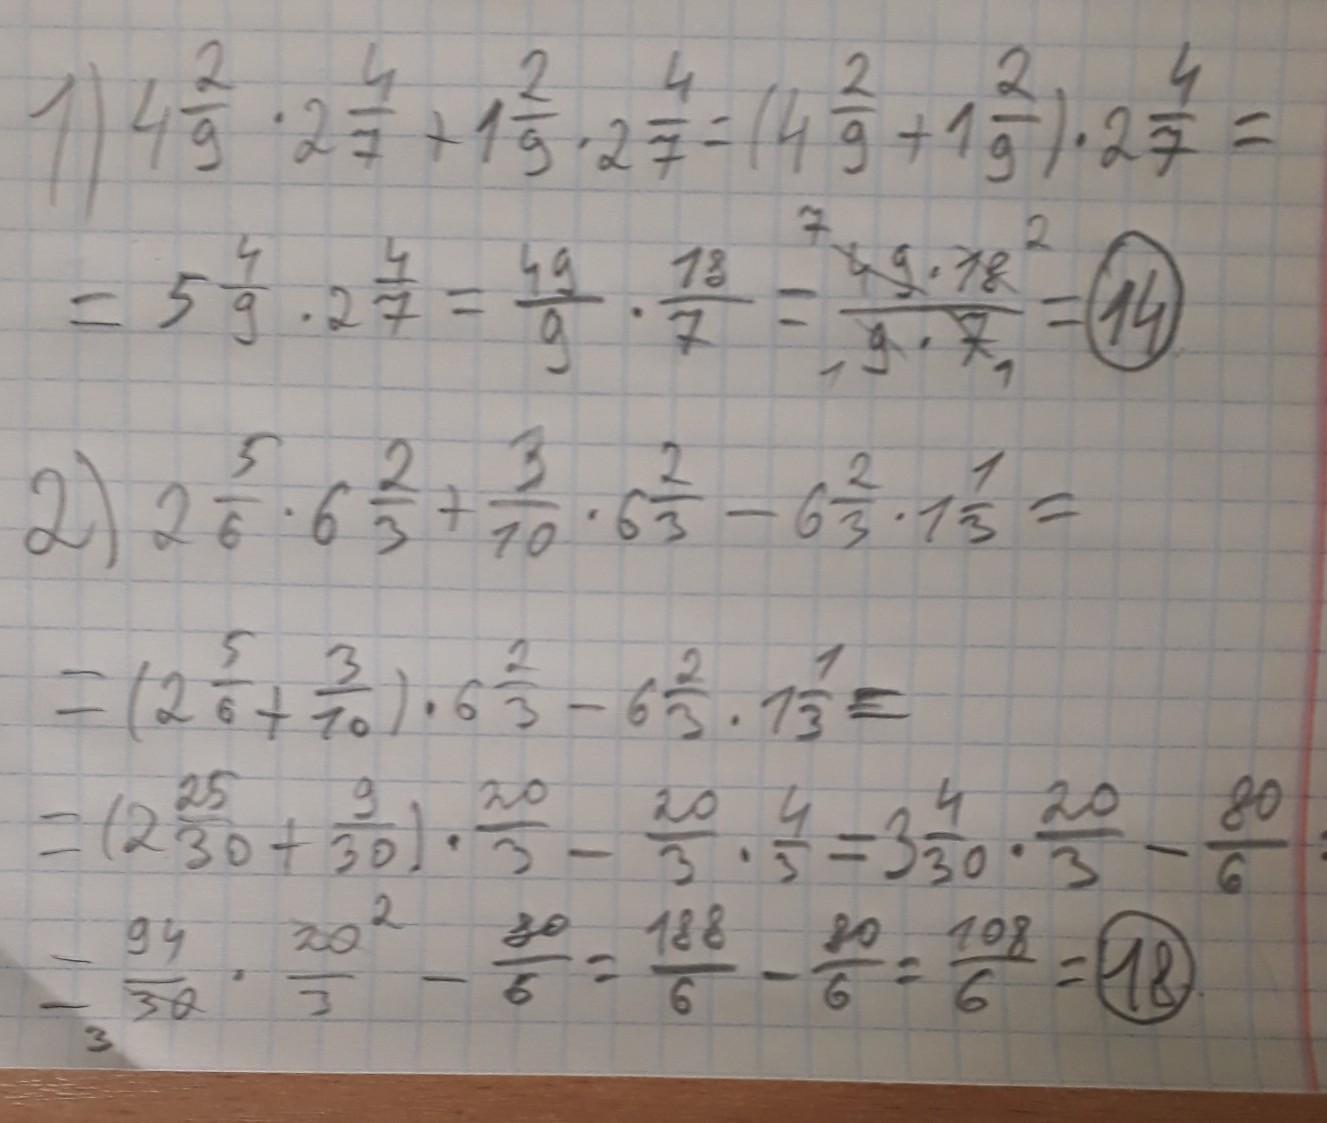 1) 4 2/9 · 2 4/7 + 1 2/9 · 2 4/7 = (4 2/9 + 1 2/9) · 2 4/7 =
= 5 4/9 · 2 4/7 = 49/9 · 18/7 = 7 49 · 18 2 / 1 9 · 7 1 = 14
2) 2 5/6 · 6 2/3 + 3/10 · 6 2/3 − 6 2/3 · 1 1/3 =
= (2 5/6 + 3/10) · 6 2/3 − 6 2/3 · 1 1/3 =
= (2 25/30 + 9/30) · 20/3 − 20/3 · 4/3 = 3 4/30 · 20/3 − 80/6 =
= 94/30 3 · 20 2/3 − 80/6 = 188/6 − 80/6 = 108/6 = 18